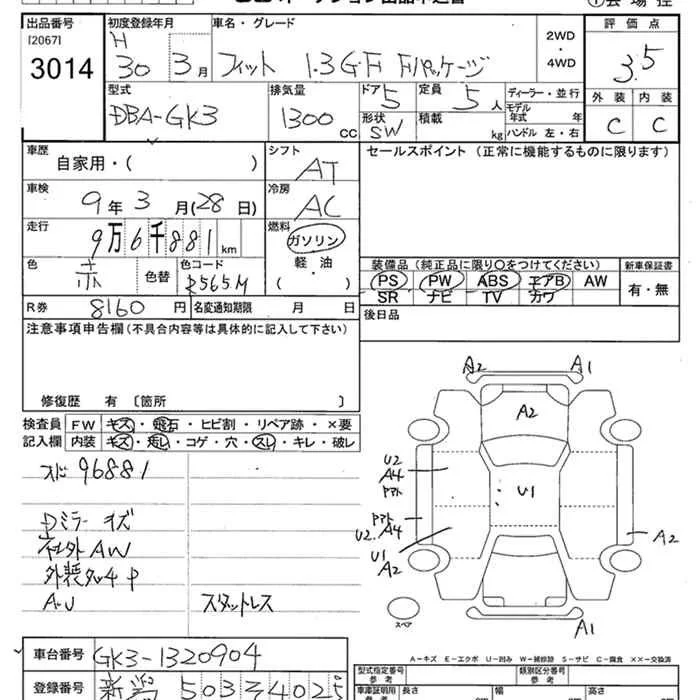 出品番号 初度登録年月 車名・グレード 2WD・4WD 評価点
[2067]
3014 H 30年 3月 フィット 1.3G・F Fパッケージ 3.5
型式 排気量 ドア 5 定員 5人 ディーラー・並行 外装 内装
DBA-GK3 1300cc 形状 SW 積載 kg モデル年式 年 ハンドル 左・右 C C
車歴 シフト セールスポイント(正常に機能するものに限ります)
自家用・( ) AT
車検 冷房
9年 3月(28日) AC
走行 燃料
9万6千881km ガソリン
色 赤 色替 色コード R565M 軽・油 ( )
装備品(純正品に限り○をつけてください) 新車保証書
PS PW ABS エアB AW 有・無
SR ナビ TV カワ
R券 8160円 名変通知期限 月 日 後日品
注意事項申告欄(不具合内容等は具体的に記入して下さい)
修復歴 有 〔箇所 〕
検査員 FW キズ・飛石・ヒビ割・リペア跡・×要
記入欄 内装 キズ・汚れ・コゲ・穴・スレ・キレ・破レ
スド 96881
Dミラー キズ
社外AW
A2 A1
A2
U2
A4
U1
U2. A4
U1
A2
A2
A1
スペア
スタットレス
A-キズ E-エクボ U-凹み W-補修跡 S-サビ C-腐食 ××-交換済
車台番号 GK3-1320904
登録番号 新潟 503
型式指定番号 参考 類別区分番号 参考
車庫証明用 参考 長さ cm 幅 cm 高さ cm